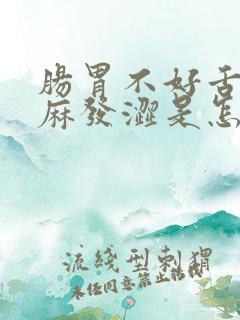 腸胃不好舌
麻發澀是怎
流綫型刺猬
未經同意禁止拮抗